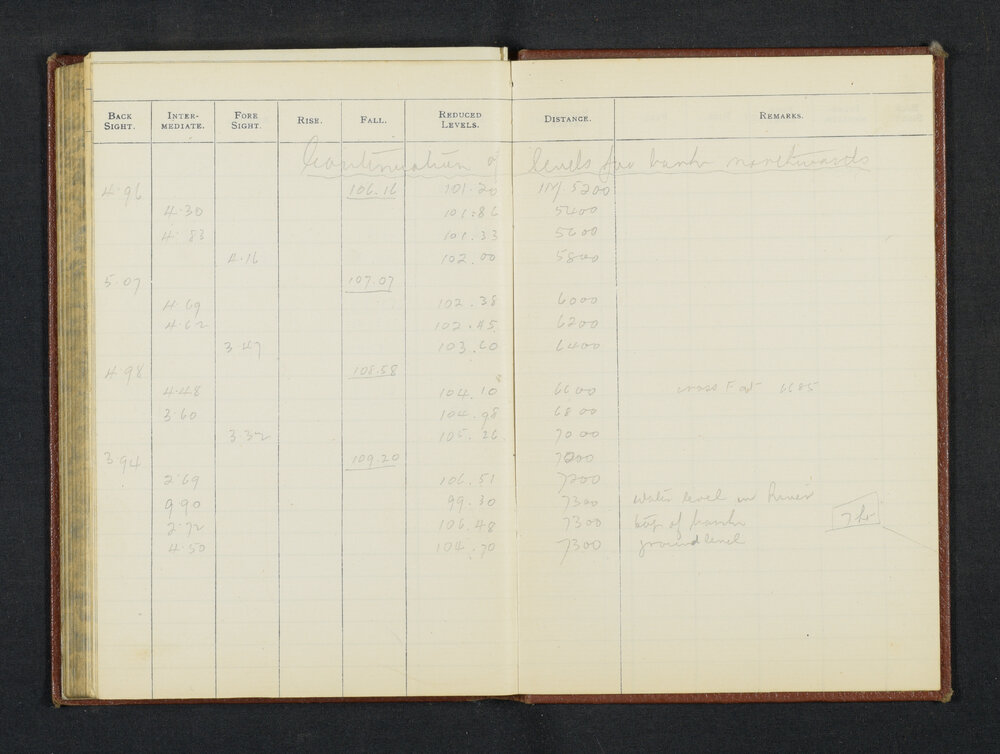 BACK SIGHT. INTER-MEDIATE. FORE SIGHT. RISE. FALL. REDUCED LEVELS. DISTANCE. REMARKS.
Continuation of levels for bank northwards
4.96 106.16 101.20 5200
4.30 101.86 5400
4.83 101.33 5600
4.16 102.00 5800
5.07 107.07
4.69 102.38 6000
4.62 102.45 6200
3.47 103.60 6400
4.98 108.58
4.48 104.10 6600 cross 6685
3.60 104.98 6800
3.32 105.26 7000
3.94 109.20 7200
2.69 106.51 7200
9.90 99.30 7300 water level in River
2.72 106.48 7300 top of bank
4.50 104.70 7300 ground level